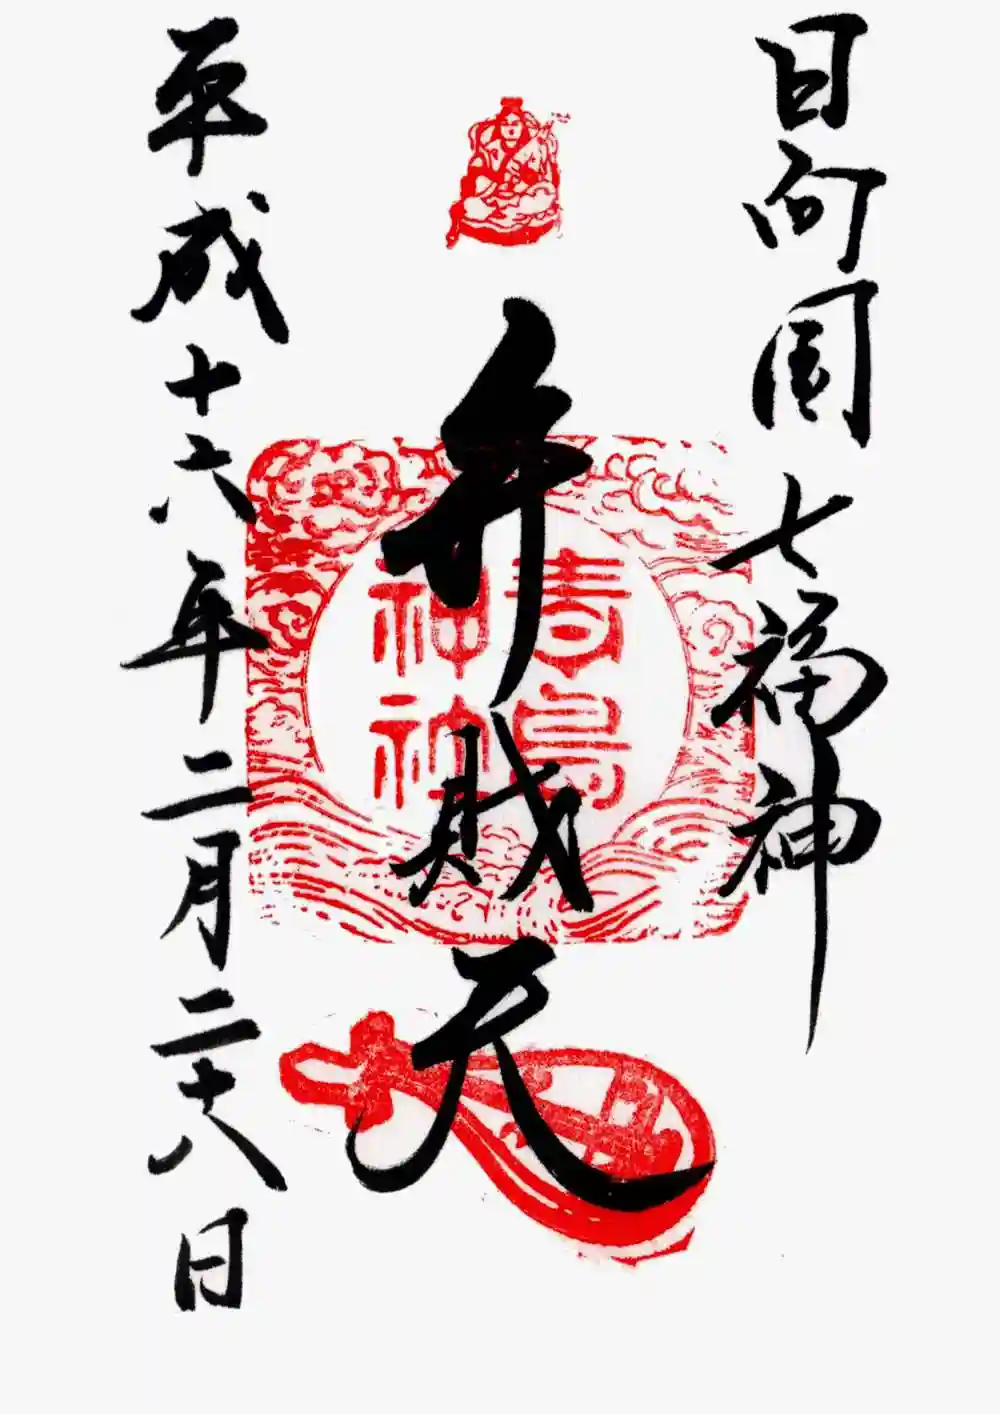 日向國七福神
弁財天
青島
神社
平成十六年二月二十八日